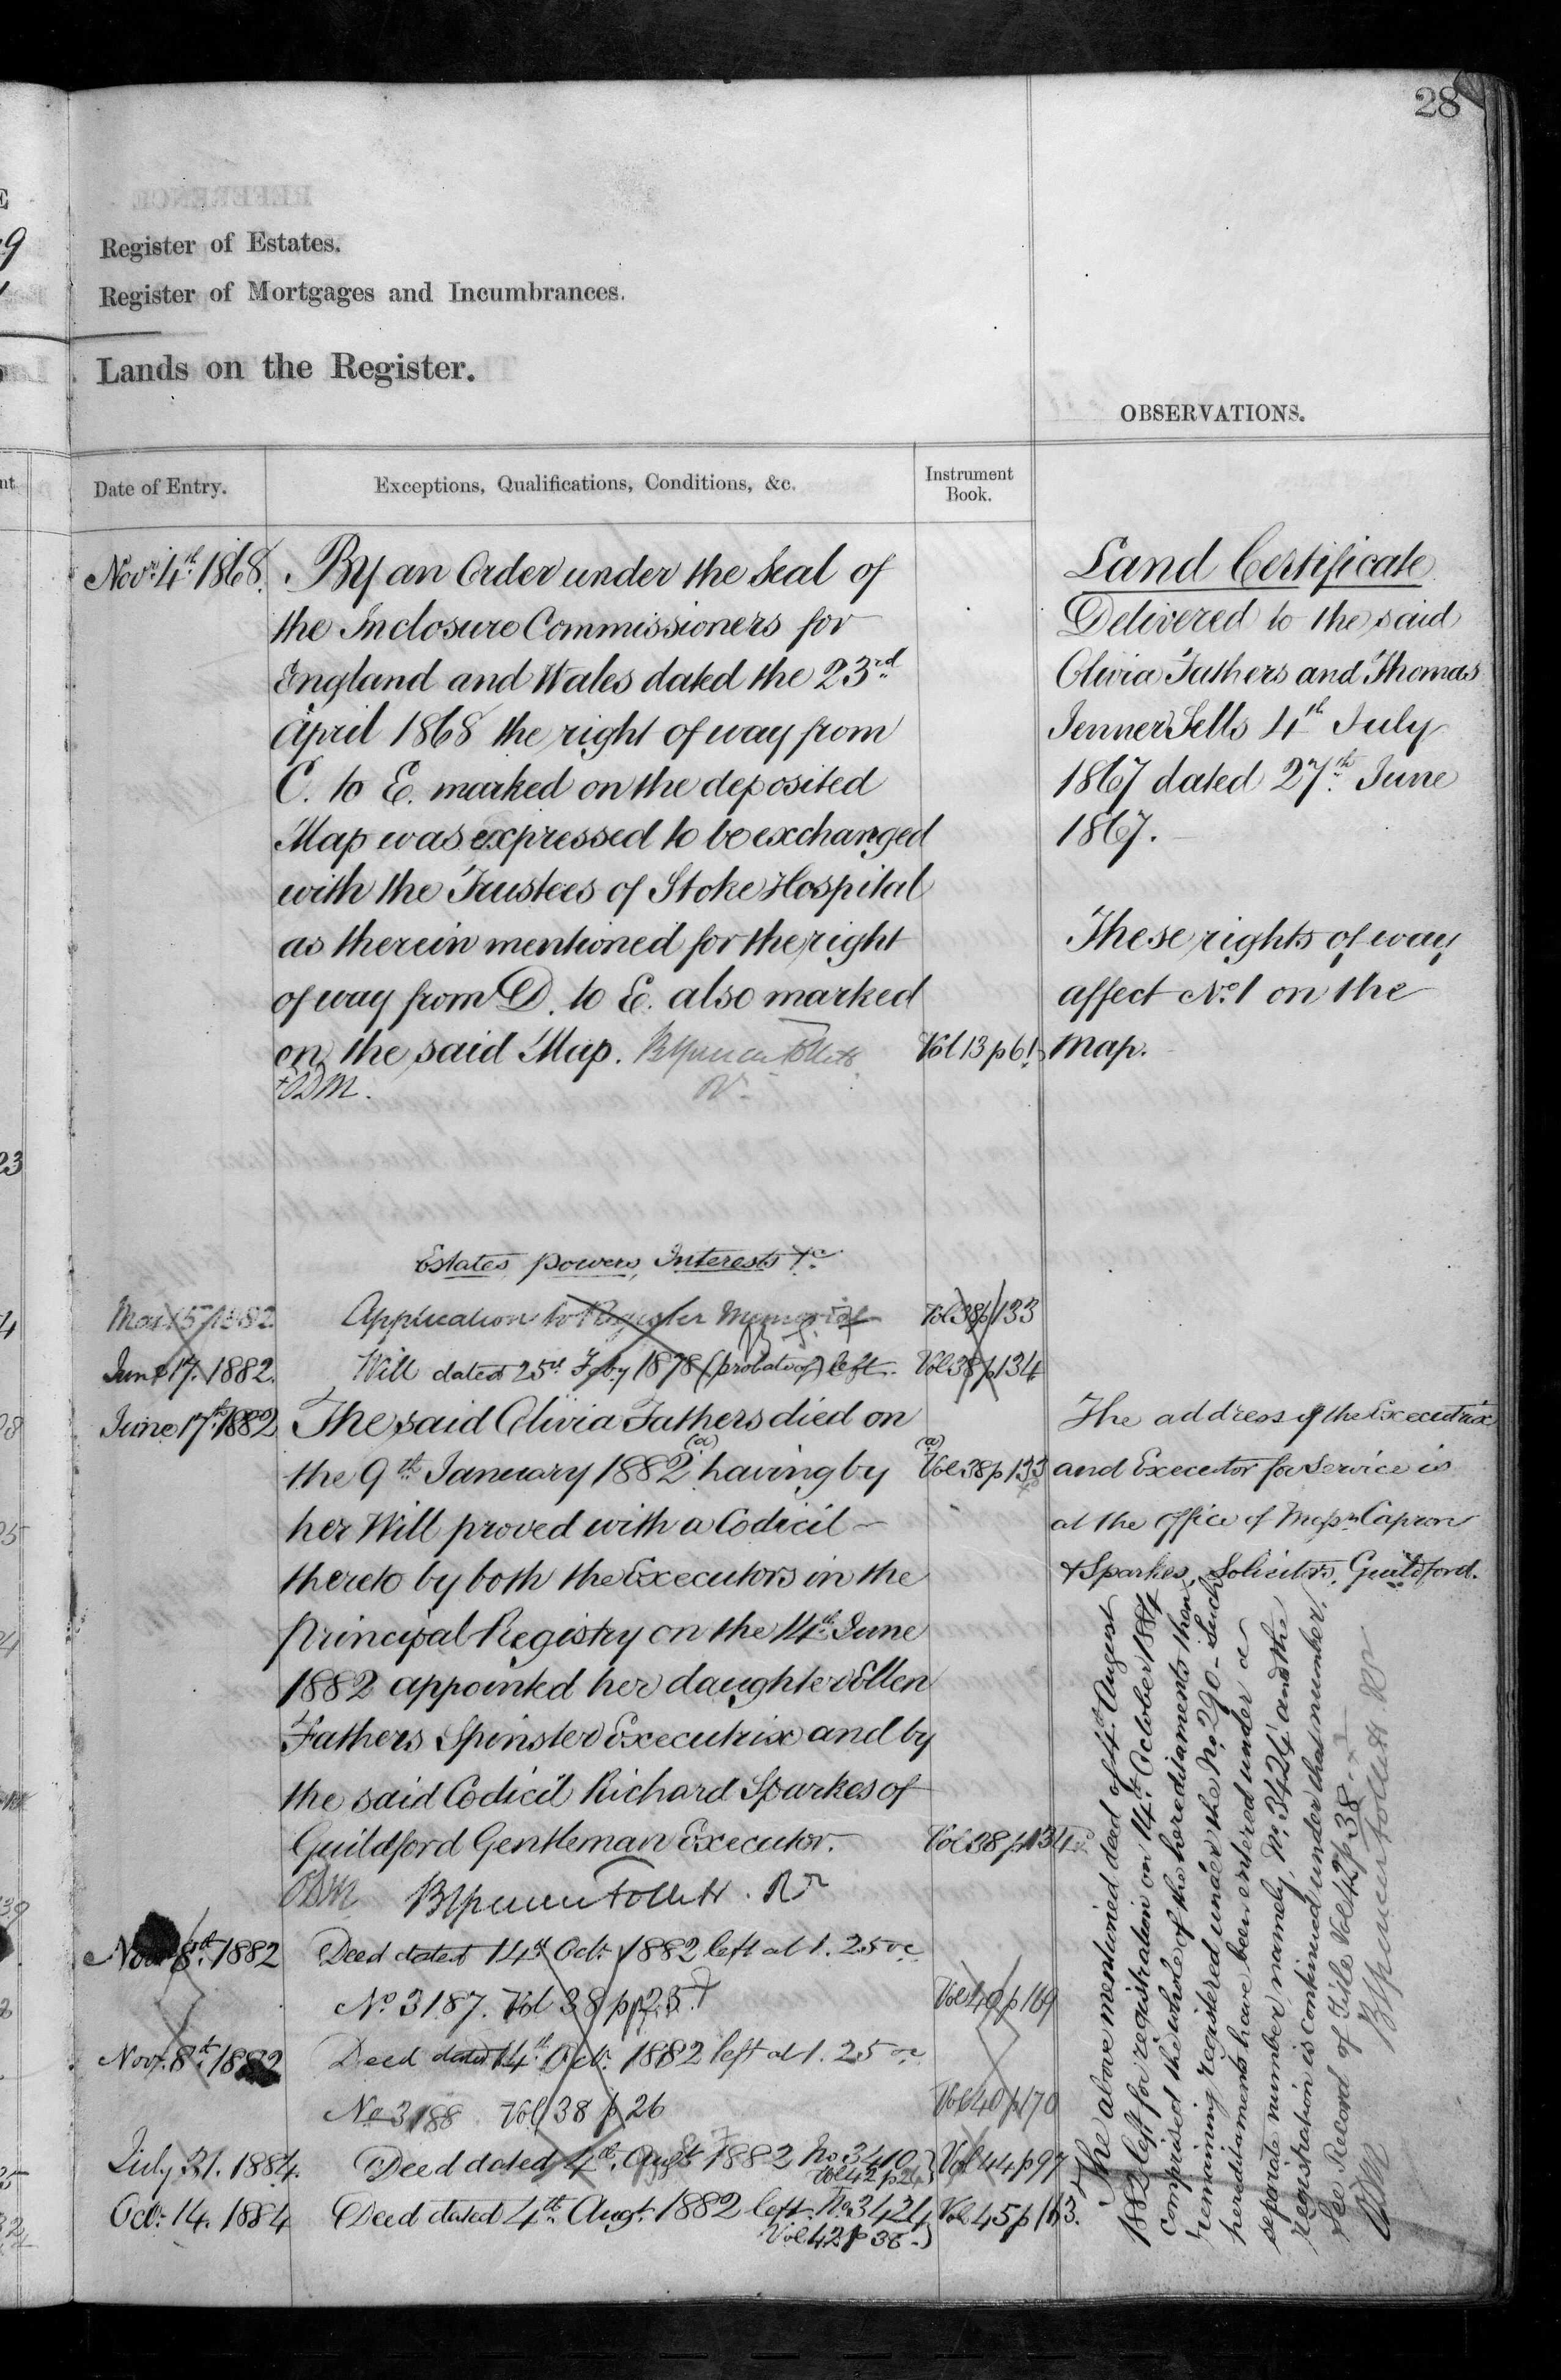 28
Register of Estates.
Register of Mortgages and Incumbrances.
Lands on the Register.
OBSERVATIONS.
Date of Entry.
Exceptions, Qualifications, Conditions, &c.
Instrument
Book.
Novr. 4th 1868. By an Order under the Seal of
the Inclosure Commissioners for
England and Wales dated the 23rd
April 1868 the right of way from
C. to E. marked on the deposited
Map was expressed to be exchanged
with the Trustees of Stoke Hospital
as therein mentioned for the right
of way from D. to E. also marked
on the said Map. Vol 13 p 61
Land Certificate
Delivered to the said
Olivia Fathers and Thomas
Jenner Sells 4th July
1867 dated 27th June
1867.
These rights of way
affect No. 1 on the
Map.
Estates, powers, Interests &c.
Mar 15 1882 Application to Register Vol 38 p 133
June 17. 1882. Will dated 25th Feby 1878 (probate of) left. Vol 38 p 134
June 17th 1882 The said Olivia Fathers died on
the 9th January 1882 (a) having by (a) Vol 38 p 133
her Will proved with a Codicil
thereto by both the Executors in the
Principal Registry on the 14th June
1882 appointed her daughter Ellen
Fathers Spinster Executrix and by
the said Codicil Richard Sparkes of
Guildford Gentleman Executor. Vol 38 p 134
The address of the Executrix
and Executor for Service is
at the Office of Messrs Capron
& Sparkes, Solicitors, Guildford.
Novr 8th 1882 Deed dated 14th Octr 1882 left at 1.25
No 3187. Vol 38 p 25. Vol 40 p 169
Novr. 8th 1882 Deed dated 14th Octr. 1882 left at 1.25
No 3188 Vol 38 p 26 Vol 40 p 170
July 31. 1884. Deed dated 4th Augt 1882 No 3410 Vol 44 p 97
Vol 42 p 24
Oct. 14. 1884 Deed dated 4th Augt. 1882 left. No. 3424 Vol 45 p 163.
Vol 42 p 38.
The above mentioned deed of 4th August
1882 left for registration on 14th October 1884
comprised the whole of the hereditaments then
remaining registered under the No. 290 - Such
hereditaments have been entered under a
separate number namely, No. 3424 and the
registration is continued under that number.
See Record of Title Vol 42 p 38.